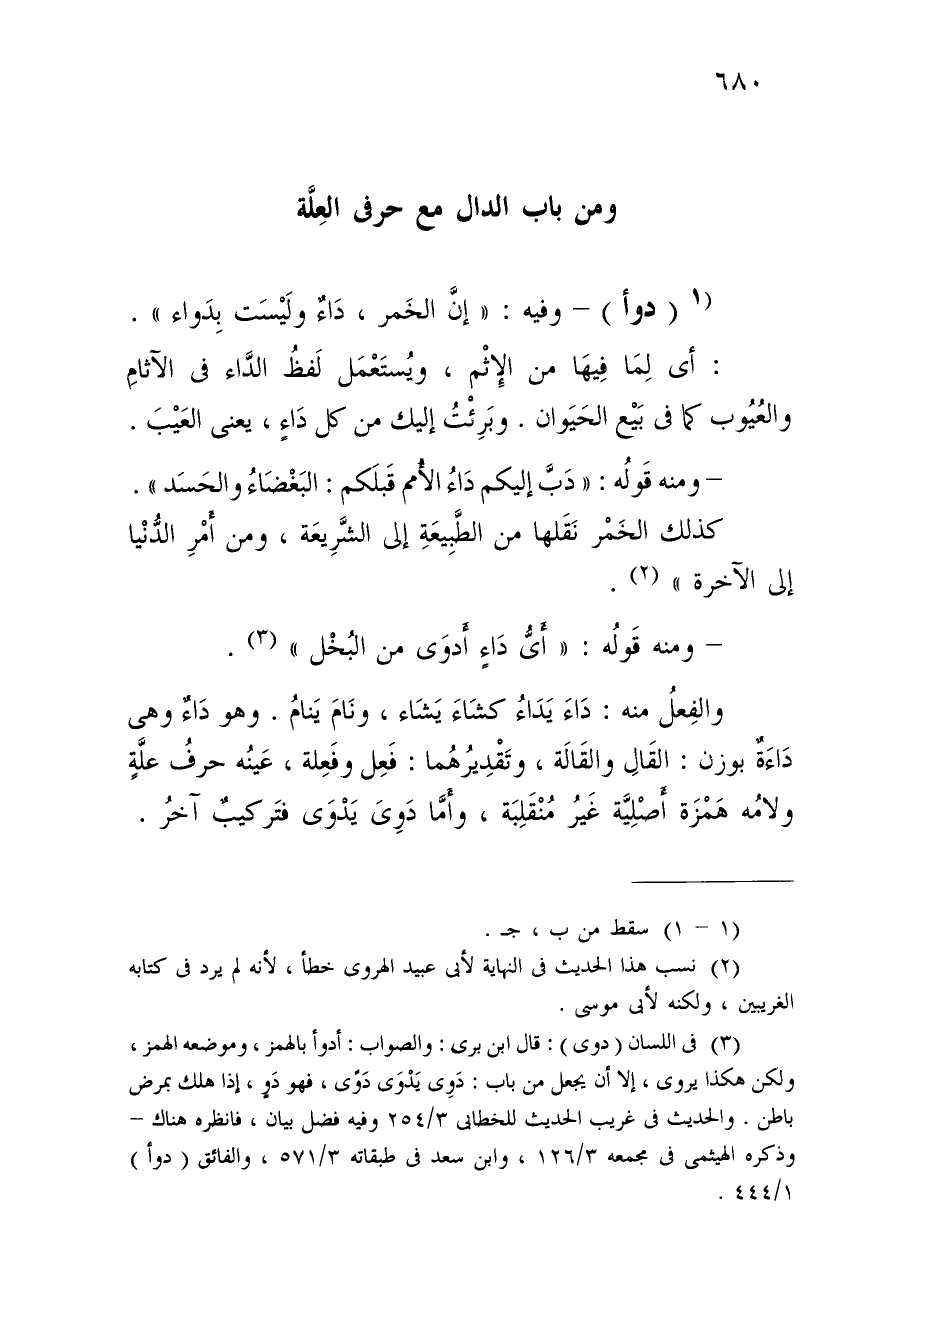 ٦٨٠
ومن باب الدال مع حرفى العِلَّة
(١ ( دوأ ) – وفيه : « إنَّ الخَمر ، دَاءٌ ولَيْسَت بِدَواء » .
: أى لِمَا فِيهَا من الإِثْم ، ويُستَعْمَل لَفظُ الدَّاء فى الآثامِ
والعُيُوب كما فى بَيْع الحَيَوان . وبَرِئْتُ إليك من كل دَاءٍ ، يعنى العَيْبَ .
– ومنه قَولُه : « دَبَّ إليكم دَاءُ الأُمم قَبلَكم : البَغْضَاءُ والحَسَد » .
كذلك الخَمْر نَقَلها من الطَّبِيعَةِ إلى الشَّرِيعَة ، ومن أَمْرِ الدُّنْيا
إلى الآخرة » (٢) .
– ومنه قَولُه : « أَىُّ دَاءٍ أَدوَى من البُخْل » (٣) .
والفِعلُ منه : دَاءَ يَدَاءُ كشَاءَ يَشَاء ، ونَامَ يَنامُ . وهو دَاءٌ وهى
دَاءَةٌ بوزن : القَالِ والقَالَة ، وتَقْدِيرُهُما : فَعِل وفَعِلة ، عَينُه حرفُ علَّةٍ
ولامُه هَمْزَة أَصْلِيَّة غَيرُ مُنْقَلِبَة ، وأَمَّا دَوِىَ يَدْوَى فتَركيبٌ آخرُ .
(١ – ١) سقط من ب ، جـ .
(٢) نسب هذا الحديث فى النهاية لأبى عبيد الهروى خطأ ، لأنه لم يرد فى كتابه
الغريبين ، ولكنه لأبى موسى .
(٣) فى اللسان ( دوى ) : قال ابن برى : والصواب : أدوأ بالهمز ، وموضعه الهمز ،
ولكن هكذا يروى ، إلا أن يجعل من باب : دَوِى يَدْوَى دَوًى ، فهو دَوٍ ، إذا هلك بمرض
باطن . والحديث فى غريب الحديث للخطابى ٢٥٤/٣ وفيه فضل بيان ، فانظره هناك –
وذكره الهيثمى فى مجمعه ١٢٦/٣ ، وابن سعد فى طبقاته ٥٧١/٣ ، والفائق ( دوأ )
٤٤٤/١ .